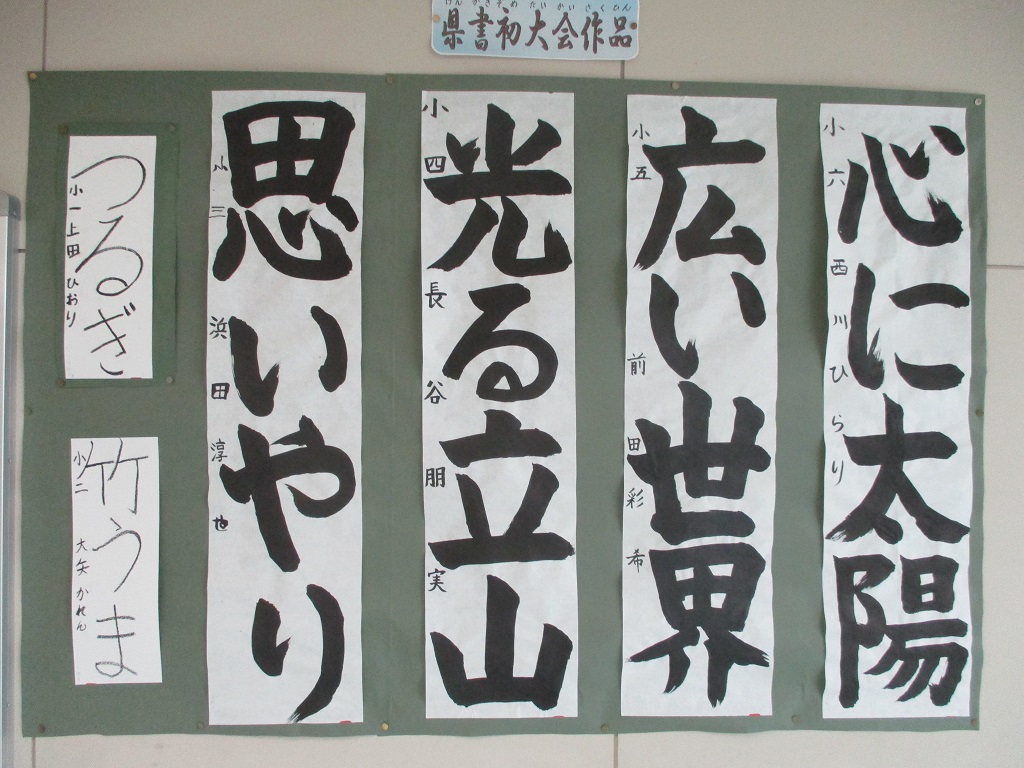 けんかきぞめたいかいさくひん
県書初大会作品
心に太陽
小六 西川ひらり
広い世界
小五 前田彩希
光る立山
小四 長谷朋実
思いやり
小三 浜田淳也
つるぎ
小一 上田ひおり
竹うま
小二 大矢かれん